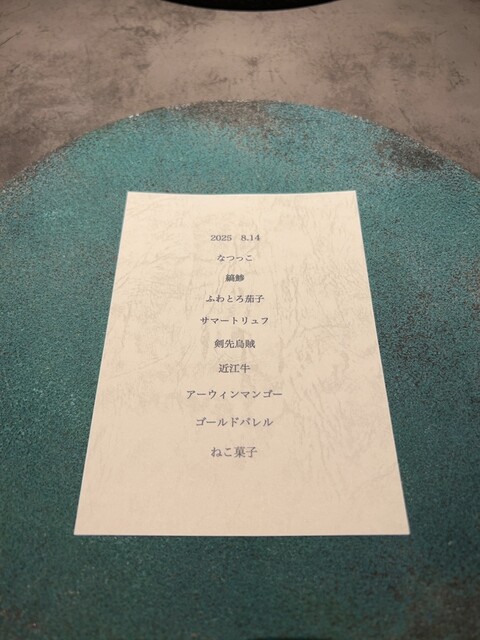 2025 8.14
なつっこ
縞鯵
ふわとろ茄子
サマートリュフ
剣先烏賊
近江牛
アーウィンマンゴー
ゴールドバレル
ねこ菓子